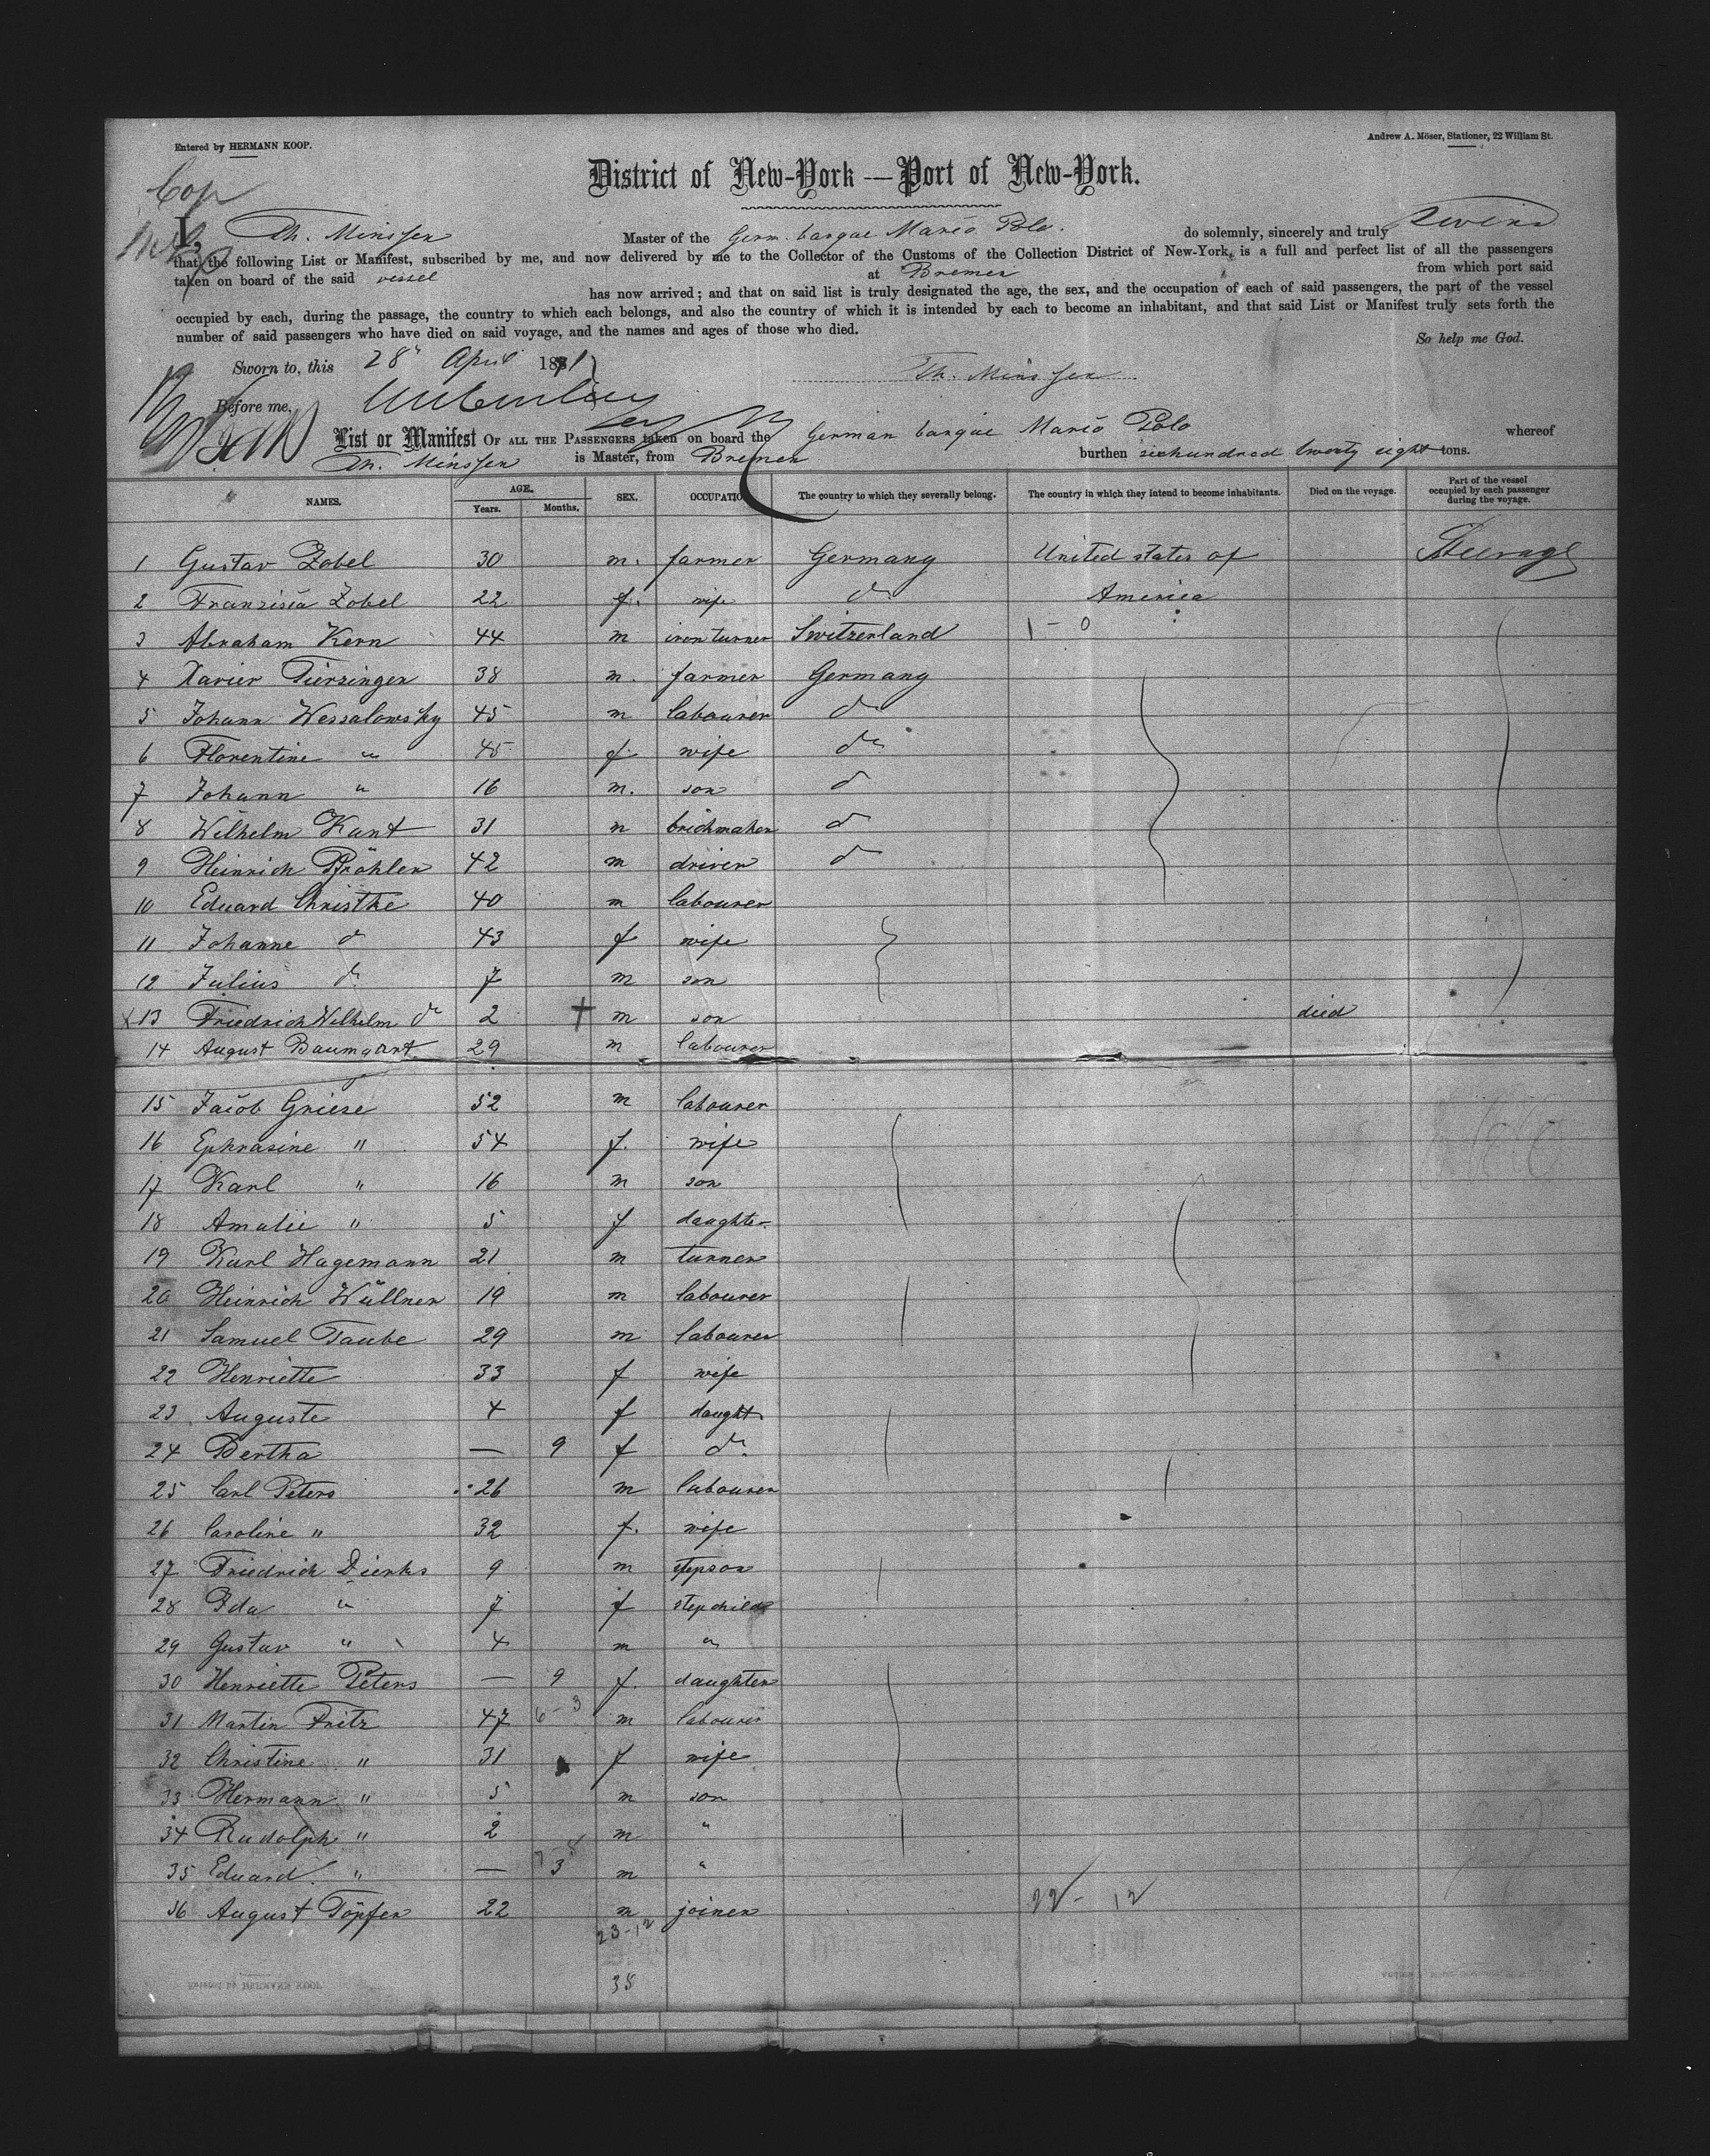 Entered by HERMANN KOOP.
Andrew A. Möser, Stationer, 22 William St.
Cop
District of New-York — Port of New-York.
I, Th. Minssen Master of the Germ. barque Marco Polo. do solemnly, sincerely and truly swear
that the following List or Manifest, subscribed by me, and now delivered by me to the Collector of the Customs of the Collection District of New-York, is a full and perfect list of all the passengers
taken on board of the said vessel at Bremen from which port said
has now arrived; and that on said list is truly designated the age, the sex, and the occupation of each of said passengers, the part of the vessel
occupied by each, during the passage, the country to which each belongs, and also the country of which it is intended by each to become an inhabitant, and that said List or Manifest truly sets forth the
number of said passengers who have died on said voyage, and the names and ages of those who died.
So help me God.
Sworn to, this 28 April 1881
Th. Minssen
Before me,
List or Manifest OF ALL THE PASSENGERS taken on board the German barque Marco Polo whereof
Th. Minssen is Master, from Bremen burthen sixhundred twenty eight tons.
NAMES. AGE. Years. Months. SEX. OCCUPATIO The country to which they severally belong. The country in which they intend to become inhabitants. Died on the voyage. Part of the vessel occupied by each passenger during the voyage.
1 Gustav Zobel 30 m. farmer Germany United states of Steerage
2 Franzisca Zobel 22 f. wife do America
3 Abraham Kern 44 m iron turner Switzerland 1 - 0
4 Xavier Tierzinger 38 m. farmer Germany
5 Johann Wessalowsky 45 m labourer do
6 Florentine " 45 f. wife do
7 Johann " 16 m. son do
8 Wilhelm Kant 31 m brickmaker do
9 Heinrich Pfröhler 42 m driver do
10 Eduard Christke 40 m labourer
11 Johanne do 43 f wife
12 Julius do 7 m son
x 13 Friedrich Wilhelm do 2 † m son died
14 August Baumgart 29 m labourer
15 Jacob Griese 52 m labourer
16 Ephrasine " 54 f. wife
17 Karl " 16 m son
18 Amalie " 5 f daughter
19 Karl Hagemann 21 m turner
20 Heinrich Wüllner 19 m labourer
21 Samuel Taube 29 m labourer
22 Henriette 33 f wife
23 Auguste 4 f daught
24 Bertha — 9 f do
25 Carl Peters 26 m labourer
26 Caroline " 32 f. wife
27 Friedrich Dierks 9 m stepson
28 Ida " 7 f stepchild
29 Gustav " 4 m "
30 Henriette Peters — 9 f. daughter
31 Martin Fritz 47 6-3 m labourer
32 Christine " 31 f wife
33 Hermann " 5 m son
34 Rudolph " 2 m "
35 Eduard " — 3 m "
36 August Töpfer 22 m joiner 22 - 12
23-12
35